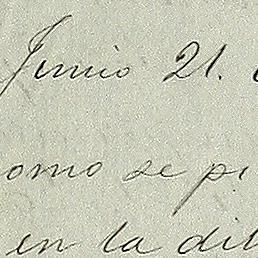 Junio 21.
omo se pi
en la dil